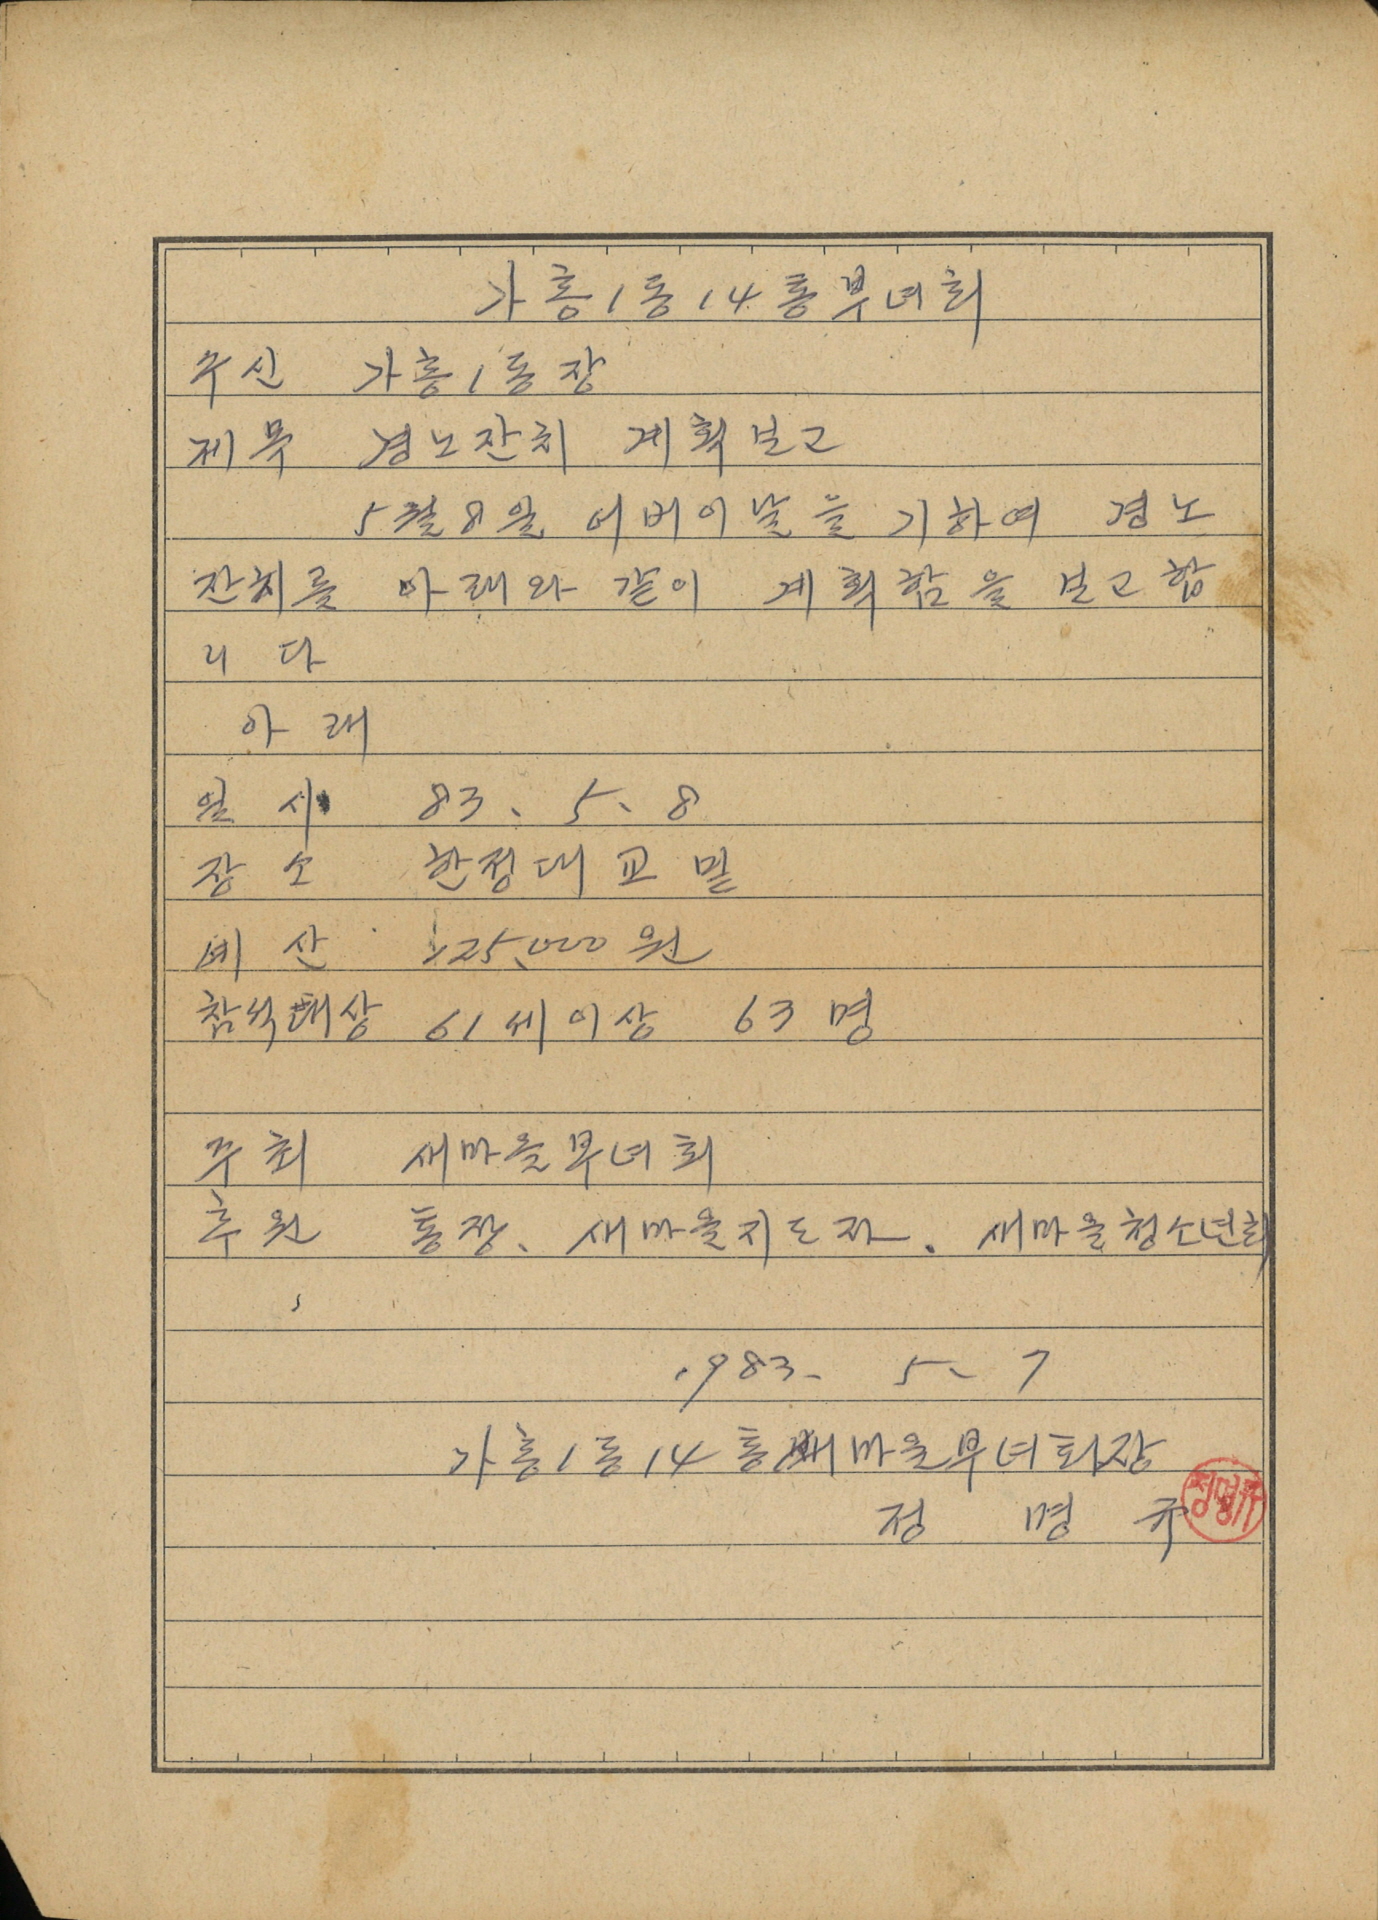 가흥1동14통부녀회
수신 가흥1동장
제목 경노잔치 계획보고
5월8일 어버이날을 기하여 경노
잔치를 아래와 같이 계획함을 보고합
니다
아래
일시 83. 5. 8
장소 한정대교밑
예산 125,000원
참석대상 61세이상 63명
주최 새마을부녀회
후원 통장、새마을지도자. 새마을청소년회
1983. 5. 7
가흥1동14통새마을부녀회장
정명규
정명규